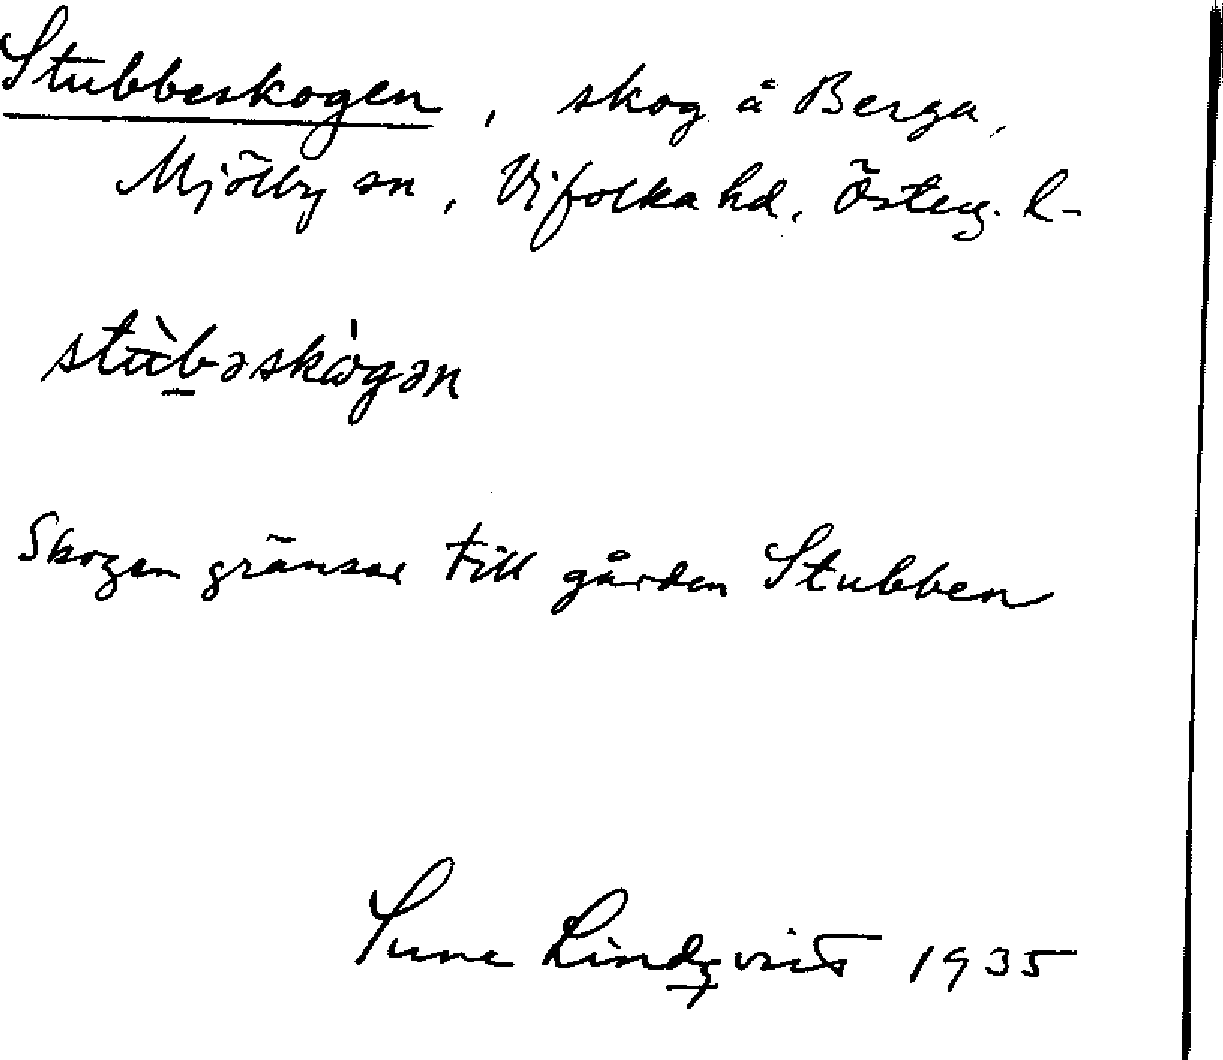 Stubbeskogen, skog å Berga,
Mjölby sn, Vifolka hd, Österg. l-
stu̇̀b̲əskɷ̀gən
Skogen gränsar till gården Stubben
Sune Lindqvist 1935